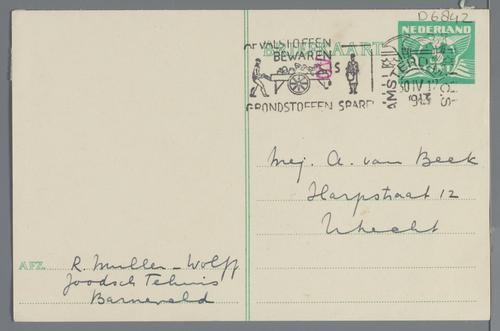 D6842
BRIEFKAART
NEDERLAND
AFVALSTOFFEN
BEWAREN
IS
GRONDSTOFFEN SPAREN
AMSTERDAM C.S.
30 IV 12
1943
Mej. A. van Beek
Harpstraat 12
Utrecht
AFZ. R. Muller-Wolff
Joodsch Tehuis
Barneveld